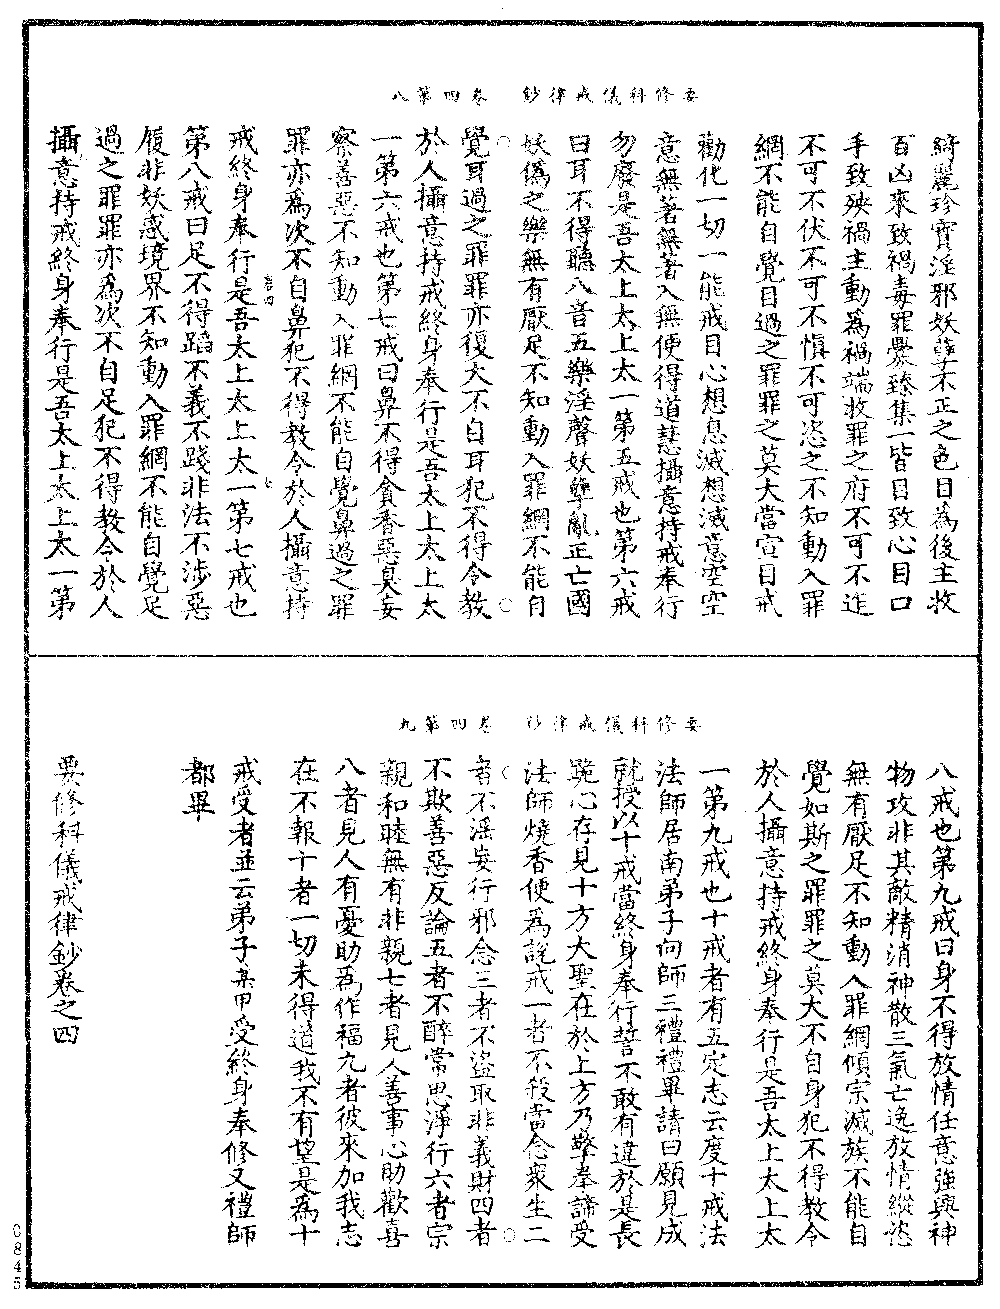 要修科儀戒律鈔　卷四第八
綺麗珍寶淫邪妖孽不正之色目為後主收
百凶來致禍毒罪釁臻集一皆目致心目口
手致殃禍主動為禍端收罪之府不可不進
不可不伏不可不慎不可恣之不知動入罪
網不能自覺目過之罪罪之莫大當宣目戒
勸化一切一能戒目心想息滅想滅意空空
意無著無著入無便得道慧攝意持戒奉行
勿廢是吾太上太上太一第五戒也第六戒
曰耳不得聽八音五樂淫聲妖孽亂正亡國
妖偽之樂無有厭足不知動入罪網不能自
覺耳過之罪罪亦復大不自耳犯不得令教
於人攝意持戒終身奉行是吾太上太上太
一第六戒也第七戒曰鼻不得貪香惡臭妄
察善惡不知動入罪網不能自覺鼻過之罪
罪亦為次不自鼻犯不得教令於人攝意持
卷四
七
戒終身奉行是吾太上太上太一第七戒也
第八戒曰足不得蹈不義不踐非法不涉惡
履非妖惑境界不知動入罪網不能自覺足
過之罪罪亦為次不自足犯不得教令於人
攝意持戒終身奉行是吾太上太上太一第
要修科儀戒律鈔　卷四第九
八戒也第九戒曰身不得放情任意強與神
物攻非其敵精消神散三氣亡逸放情縱恣
無有厭足不知動入罪網傾宗滅族不能自
覺如斯之罪罪之莫大不自身犯不得教令
於人攝意持戒終身奉行是吾太上太上太
一第九戒也十戒者有五定志云度十戒法
法師居南弟子向師三禮禮畢請曰願見成
就授以十戒當終身奉行誓不敢有違於是長
跪心存見十方大聖在於上方乃擎拳諦受
法師燒香便為說戒一者不殺當念眾生二
者不淫妄行邪念三者不盜取非義財四者
不欺善惡反論五者不醉常思淨行六者宗
親和睦無有非親七者見人善事心助歡喜
八者見人有憂助為作福九者彼來加我志
在不報十者一切未得道我不有望是為十
戒受者並云弟子某甲受終身奉修又禮師
都畢
要修科儀戒律鈔卷之四
0845